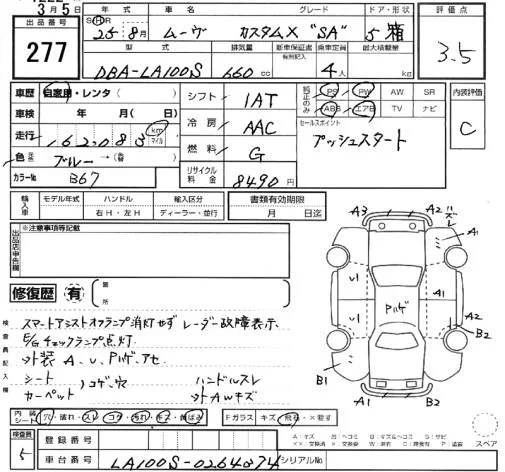 3月5日
出品番号
277
年式 車名 グレード ドア・形状
25年8月 ムーヴ カスタムX "SA" 5 箱
型式 排気量 新車保証書 乗車定員 最大積載量
有無記入
DBA-LA100S 660cc 4人 kg
評価点
3.5
車歴 自家用・レンタ
車検 年 月(日)
走行 162,083 km マイル
色 ブルー→(替)
カラーNo B67
シフト 1AT
冷房 AAC
燃料 G
リサイクル料金 8490円
純正のみ PS PW AW SR
ABS エアB TV ナビ
セールスポイント
プッシュスタート
内装評価
C
輸入車 モデル年式 ハンドル 輸入区分
右H・左H ディーラー・並行
書類有効期限
月 日迄
出品店申告欄
※注意事項等記載
修復歴 有 箇所
検査員記入欄
スマートアシストオフランプ消灯せず レーダー故障表示
E/Gチェックランプ点灯
外装 A、U、Pハゲ、アセ
シート
カーペット
コゲ、穴
ハンドルスレ
AWキズ
A3 A2 A2 A1 U1 U1 Pハゲ A1 A2 B2 B1 A1 B2 A2
内装シート 穴・破れ・スレ・コゲ・汚れ・キズ・錆ばみ
Fガラス キズ・飛石・×要す
検査員
5
登録番号
車台番号 LA100S-0264874
シリアルNo
A:キズ U:ヘコミ B:キズ&ヘコミ S:サビ
XX:交換済 X:交換要 W:波 C:腐食 P:塗装
スペア